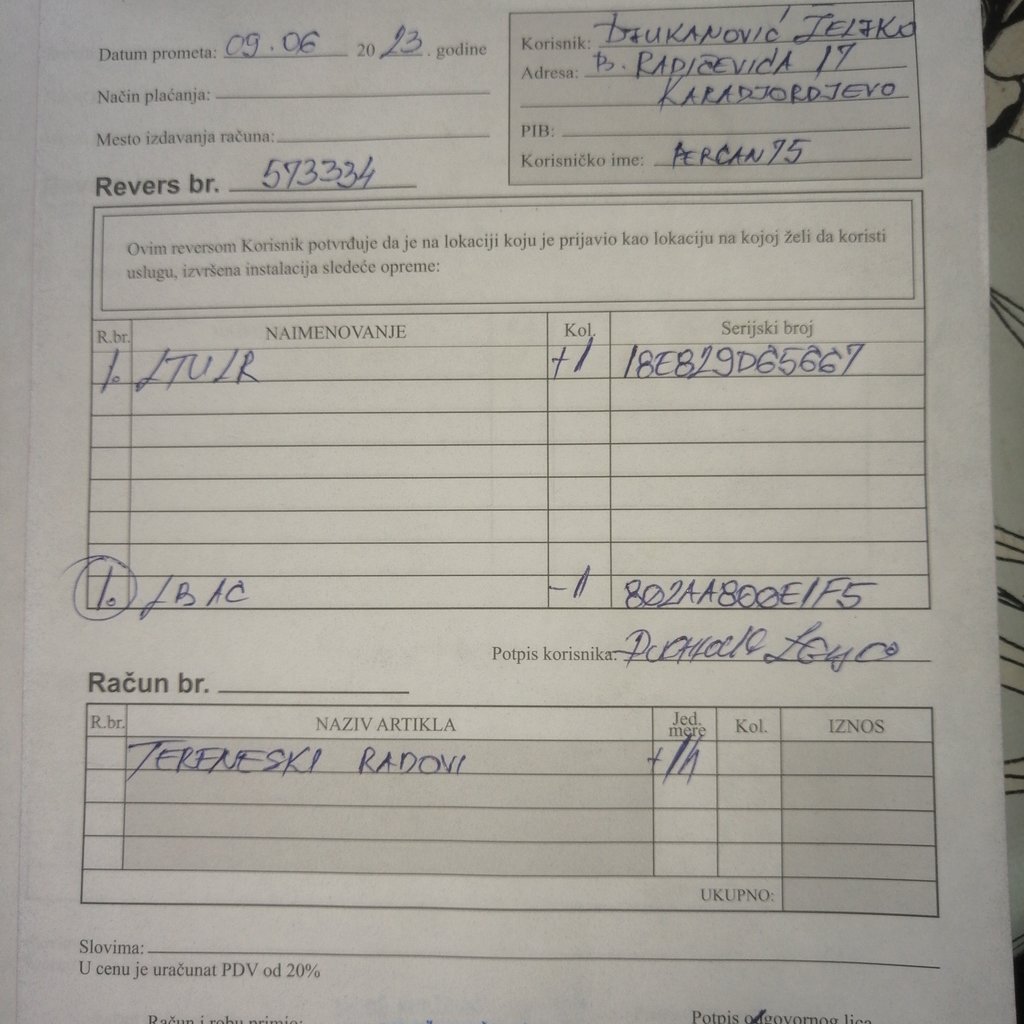 Datum prometa: 09.06 2023. godine
Način plaćanja:
Mesto izdavanja računa:
Revers br. 573334
Korisnik: DJUKANOVIĆ ŽELJKO
Adresa: B. RADIČEVIĆA 17
KARADJORDJEVO
PIB:
Korisničko ime: PERCAN75
Ovim reversom Korisnik potvrđuje da je na lokaciji koju je prijavio kao lokaciju na kojoj želi da koristi
uslugu, izvršena instalacija sledeće opreme:
R.br. NAIMENOVANJE Kol. Serijski broj
1. LTULR +1 18E829D65667
1. LBAC -1 802AA800E1F5
Potpis korisnika:
Račun br.
R.br. NAZIV ARTIKLA Jed. mere Kol. IZNOS
TERENESKI RADOVI
UKUPNO:
Slovima:
U cenu je uračunat PDV od 20%
Račun i robu primio:
Potpis odgovornog lica